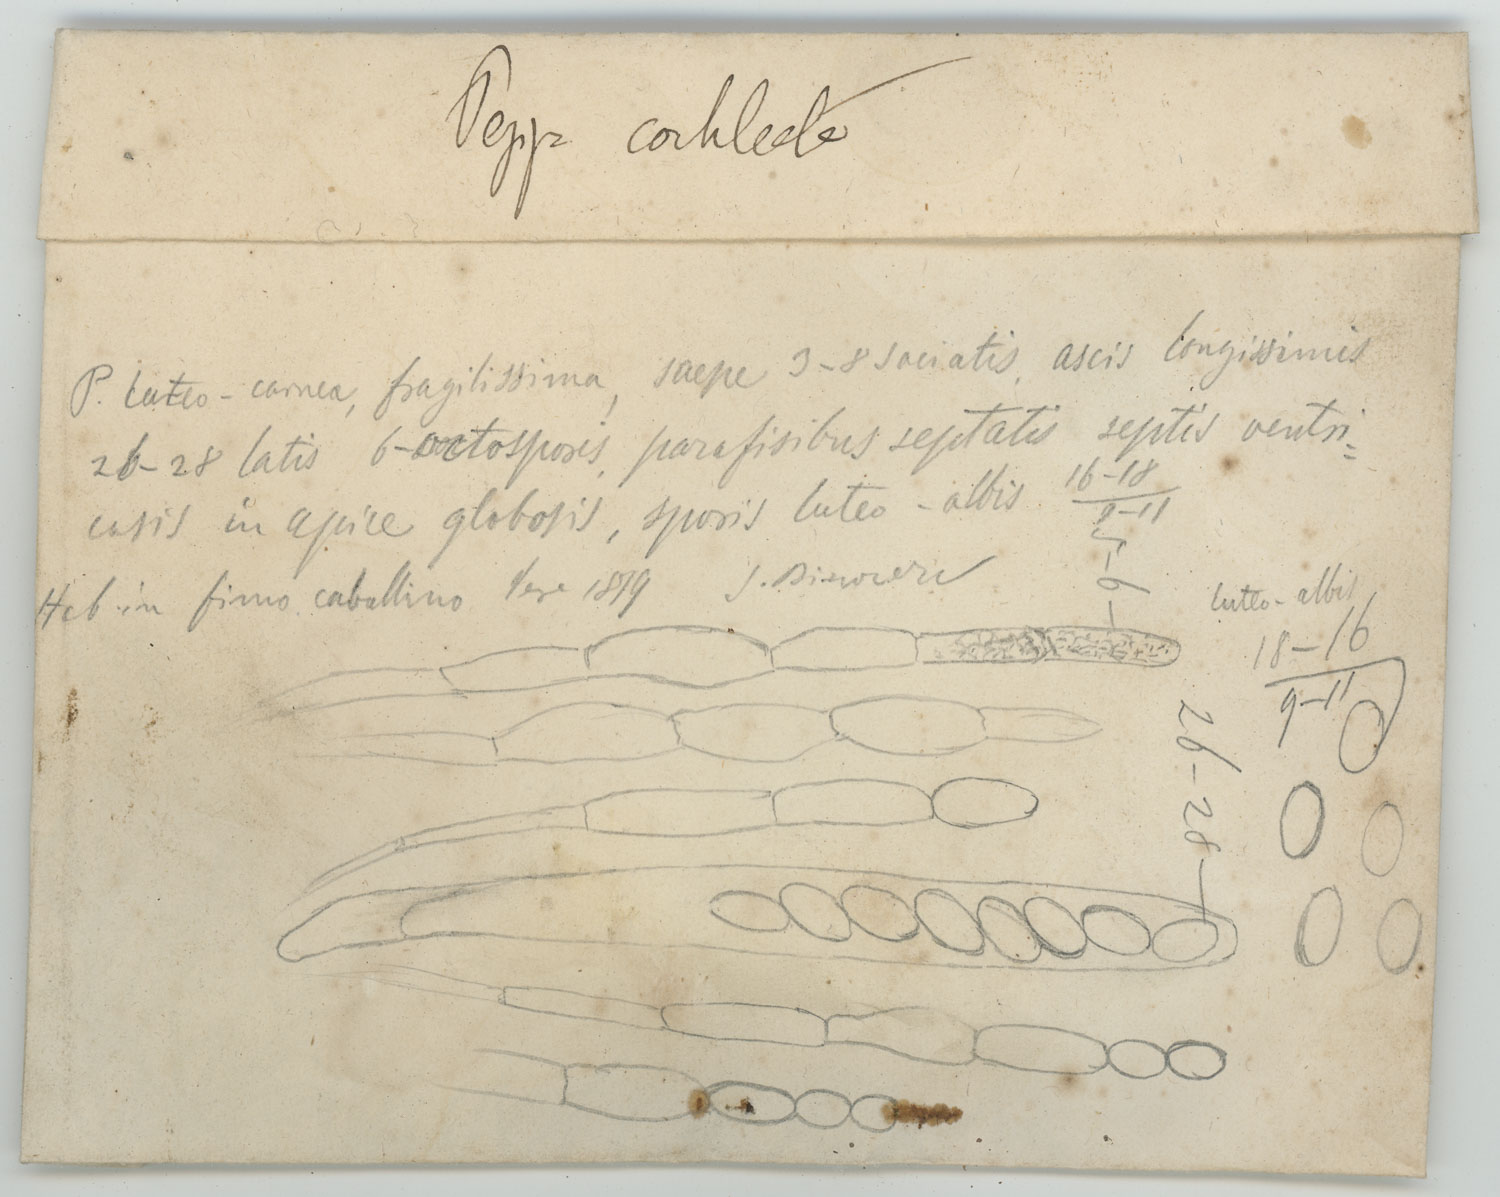 P. luteo-carnea, fragilissima, saepe 3-8 sociatis, ascis longissimis
26-28 latis 6-octosporis, parafisibus septatis septis ventri=
cosis in apice globosis, sporis luteo-albis 16-18
9-11
Hab. in fimo caballino 1879
5-6
luteo-albis
18-16
9-11
26-28